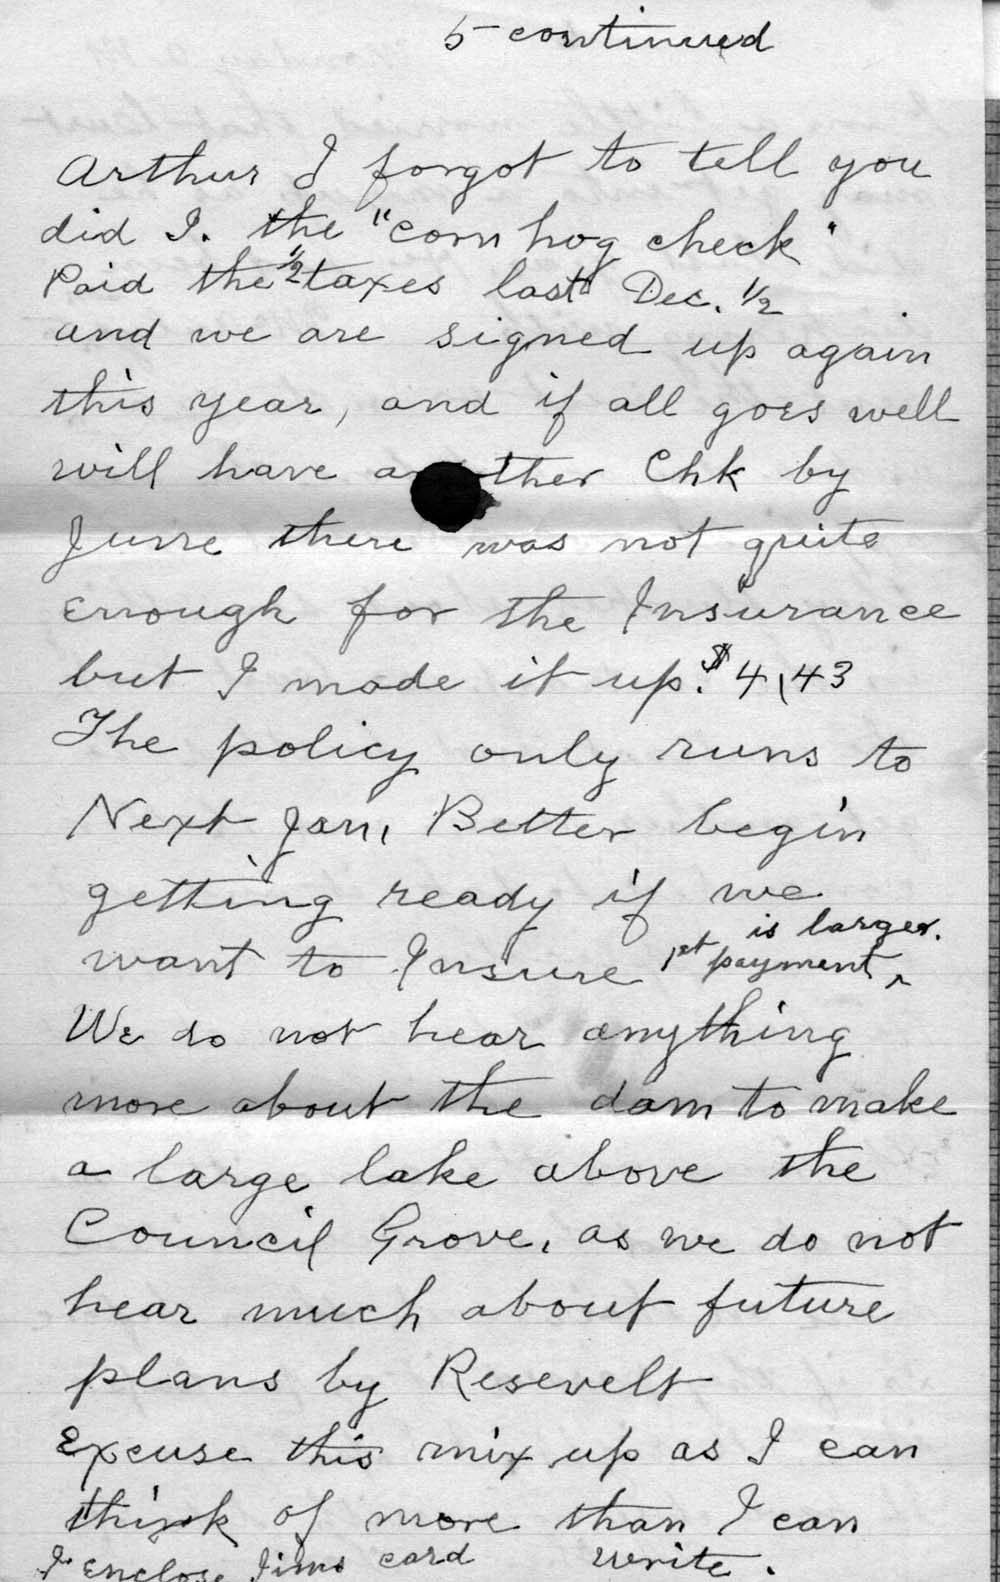 5 continued
Arthur I forgot to tell you
did I. the "corn hog check"
Paid the 1/2 taxes last Dec. 1/2
and we are signed up again
this year, and if all goes well
will have another Chk by
June there was not quite
enough for the Insurance
but I made it up. $4,43
The policy only runs to
Next Jan, Better begin
getting ready if we
is larger.
want to Insure 1st payment ^
We do not hear anything
more about the dam to make
a large lake above the
Council Grove, as we do not
hear much about future
plans by Resevelt
Excuse this mix up as I can
think of more than I can
I Enclose Jims card write.